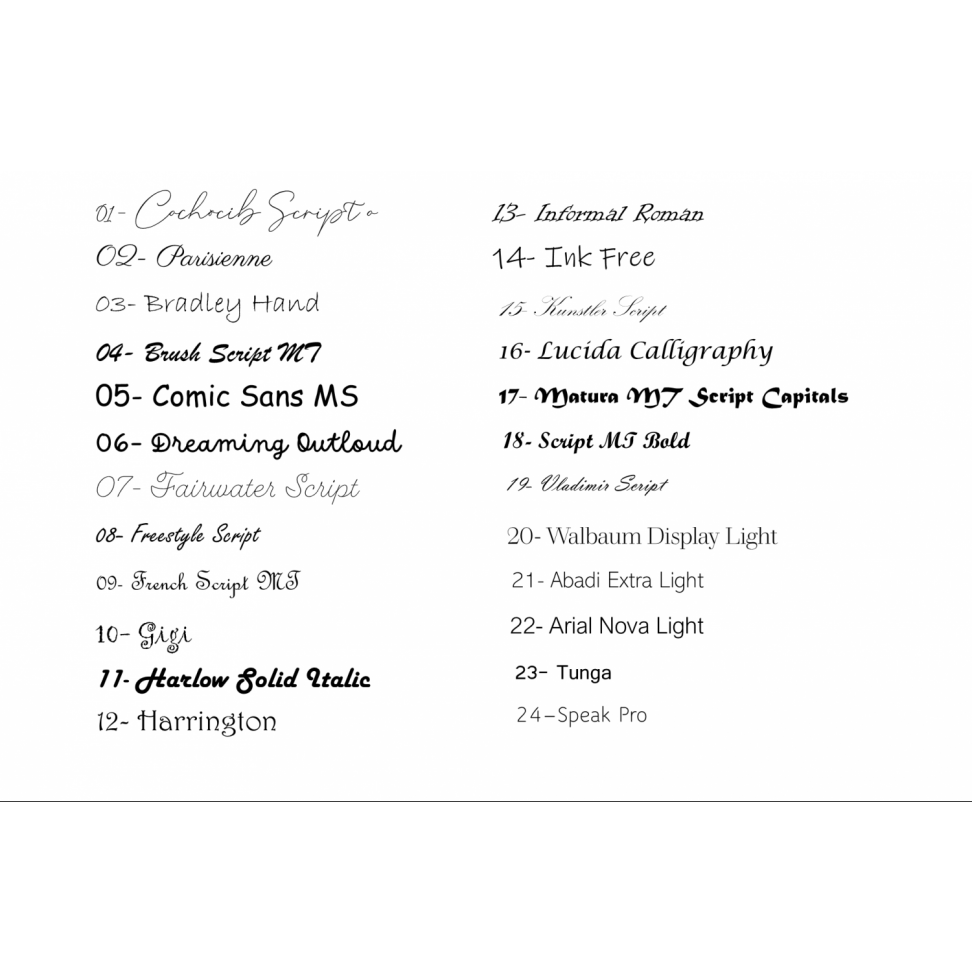 01- Cochocib Script o
02- Parisienne
03- Bradley Hand
04- Brush Script MT
05- Comic Sans MS
06- Dreaming Outloud
07- Fairwater Script
08- Freestyle Script
09- French Script MT
10- Gigi
11- Harlow Solid Italic
12- Harrington
13- Informal Roman
14- Ink Free
15- Kunstler Script
16- Lucida Calligraphy
17- Matura MT Script Capitals
18- Script MT Bold
19- Vladimir Script
20- Walbaum Display Light
21- Abadi Extra Light
22- Arial Nova Light
23- Tunga
24-Speak Pro